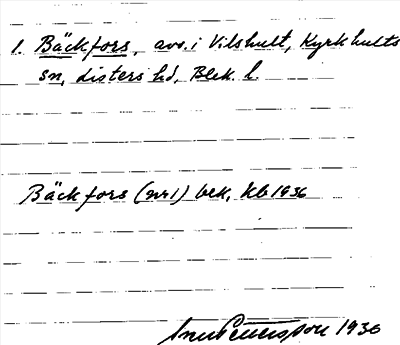 1. Bäckfors, avs. i Vilshult, Kyrkhults
sn, Listers hd, Blek. l.
Bäckfors (nr 1) bek. Kb 1936
1936